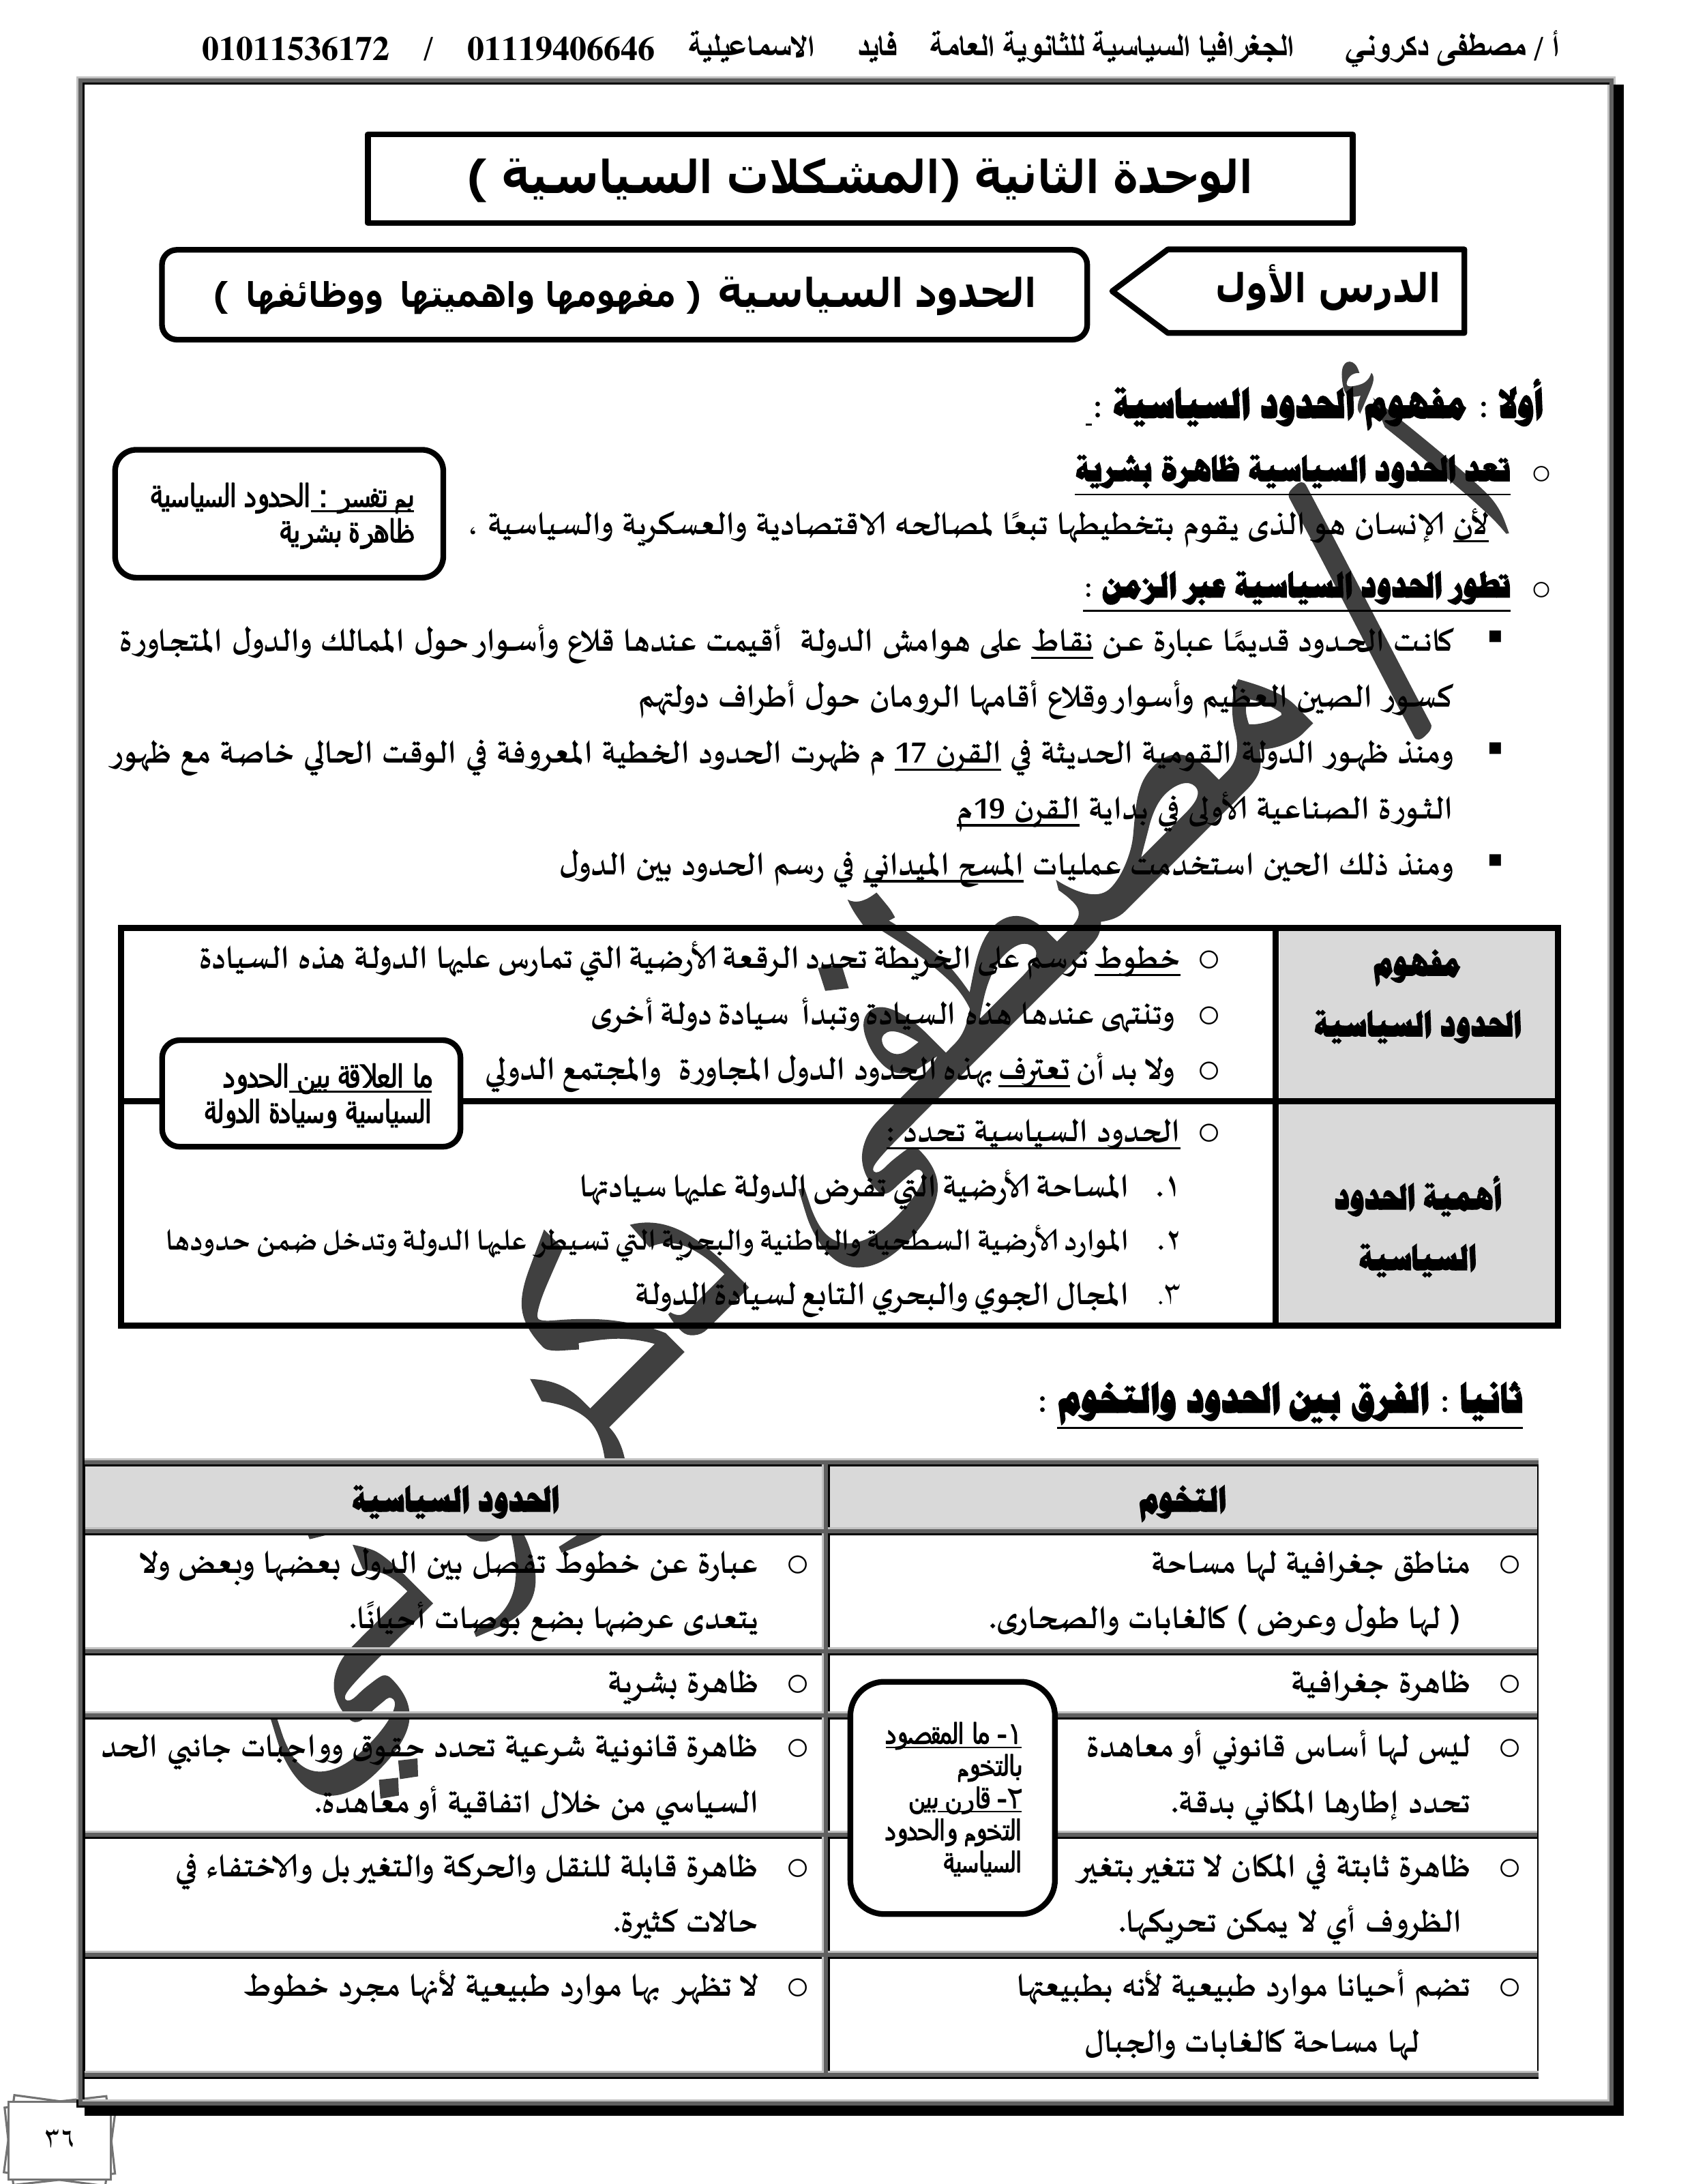 أ / مصطفى دكروني الجغرافيا السياسية للثانوية العامة فايد الاسماعيلية 01119406646 / 01011536172
الوحدة الثانية (المشكلات السياسية )
الدرس الأول
الحدود السياسية ( مفهومها واهميتها ووظائفها )
أولا : مفهوم الحدود السياسية :
○ تعد الحدود السياسية ظاهرة بشرية
لأن الإنسان هو الذى يقوم بتخطيطها تبعًا لمصالحه الاقتصادية والعسكرية والسياسية ،
بم تفسر : الحدود السياسية
ظاهرة بشرية
○ تطور الحدود السياسية عبر الزمن :
▪ كانت الحدود قديمًا عبارة عن نقاط على هوامش الدولة أقيمت عندها قلاع وأسوار حول الممالك والدول المتجاورة
كسور الصين العظيم وأسوار وقلاع أقامها الرومان حول أطراف دولتهم
▪ ومنذ ظهور الدولة القومية الحديثة في القرن 17 م ظهرت الحدود الخطية المعروفة في الوقت الحالي خاصة مع ظهور
الثورة الصناعية الأولى في بداية القرن 19م
▪ ومنذ ذلك الحين استخدمت عمليات المسح الميداني في رسم الحدود بين الدول
مفهوم
الحدود السياسية
○ خطوط ترسم على الخريطة تحدد الرقعة الأرضية التي تمارس عليها الدولة هذه السيادة
○ وتنتهى عندها هذه السيادة وتبدأ سيادة دولة أخرى
○ ولا بد أن تعترف بهذه الحدود الدول المجاورة والمجتمع الدولي
ما العلاقة بين الحدود
السياسية وسيادة الدولة
أهمية الحدود
السياسية
○ الحدود السياسية تحدد :
١. المساحة الأرضية التي تفرض الدولة عليها سيادتها
٢. الموارد الأرضية السطحية والباطنية والبحرية التي تسيطر عليها الدولة وتدخل ضمن حدودها
٣. المجال الجوي والبحري التابع لسيادة الدولة
ثانيا : الفرق بين الحدود والتخوم :
التخوم
الحدود السياسية
○ مناطق جغرافية لها مساحة
( لها طول وعرض ) كالغابات والصحارى.
○ عبارة عن خطوط تفصل بين الدول بعضها وبعض ولا
يتعدى عرضها بضع بوصات أحيانًا.
○ ظاهرة جغرافية
○ ظاهرة بشرية
○ ليس لها أساس قانوني أو معاهدة
تحدد إطارها المكاني بدقة.
○ ظاهرة قانونية شرعية تحدد حقوق وواجبات جانبي الحد
السياسي من خلال اتفاقية أو معاهدة.
١- ما المقصود
بالتخوم
٢- قارن بين
التخوم والحدود
السياسية
○ ظاهرة ثابتة في المكان لا تتغير بتغير
الظروف أي لا يمكن تحريكها.
○ ظاهرة قابلة للنقل والحركة والتغير بل والاختفاء في
حالات كثيرة.
○ تضم أحيانا موارد طبيعية لأنه بطبيعتها
لها مساحة كالغابات والجبال
○ لا تظهر بها موارد طبيعية لأنها مجرد خطوط
أ / مصطفى دكروني
٣٦